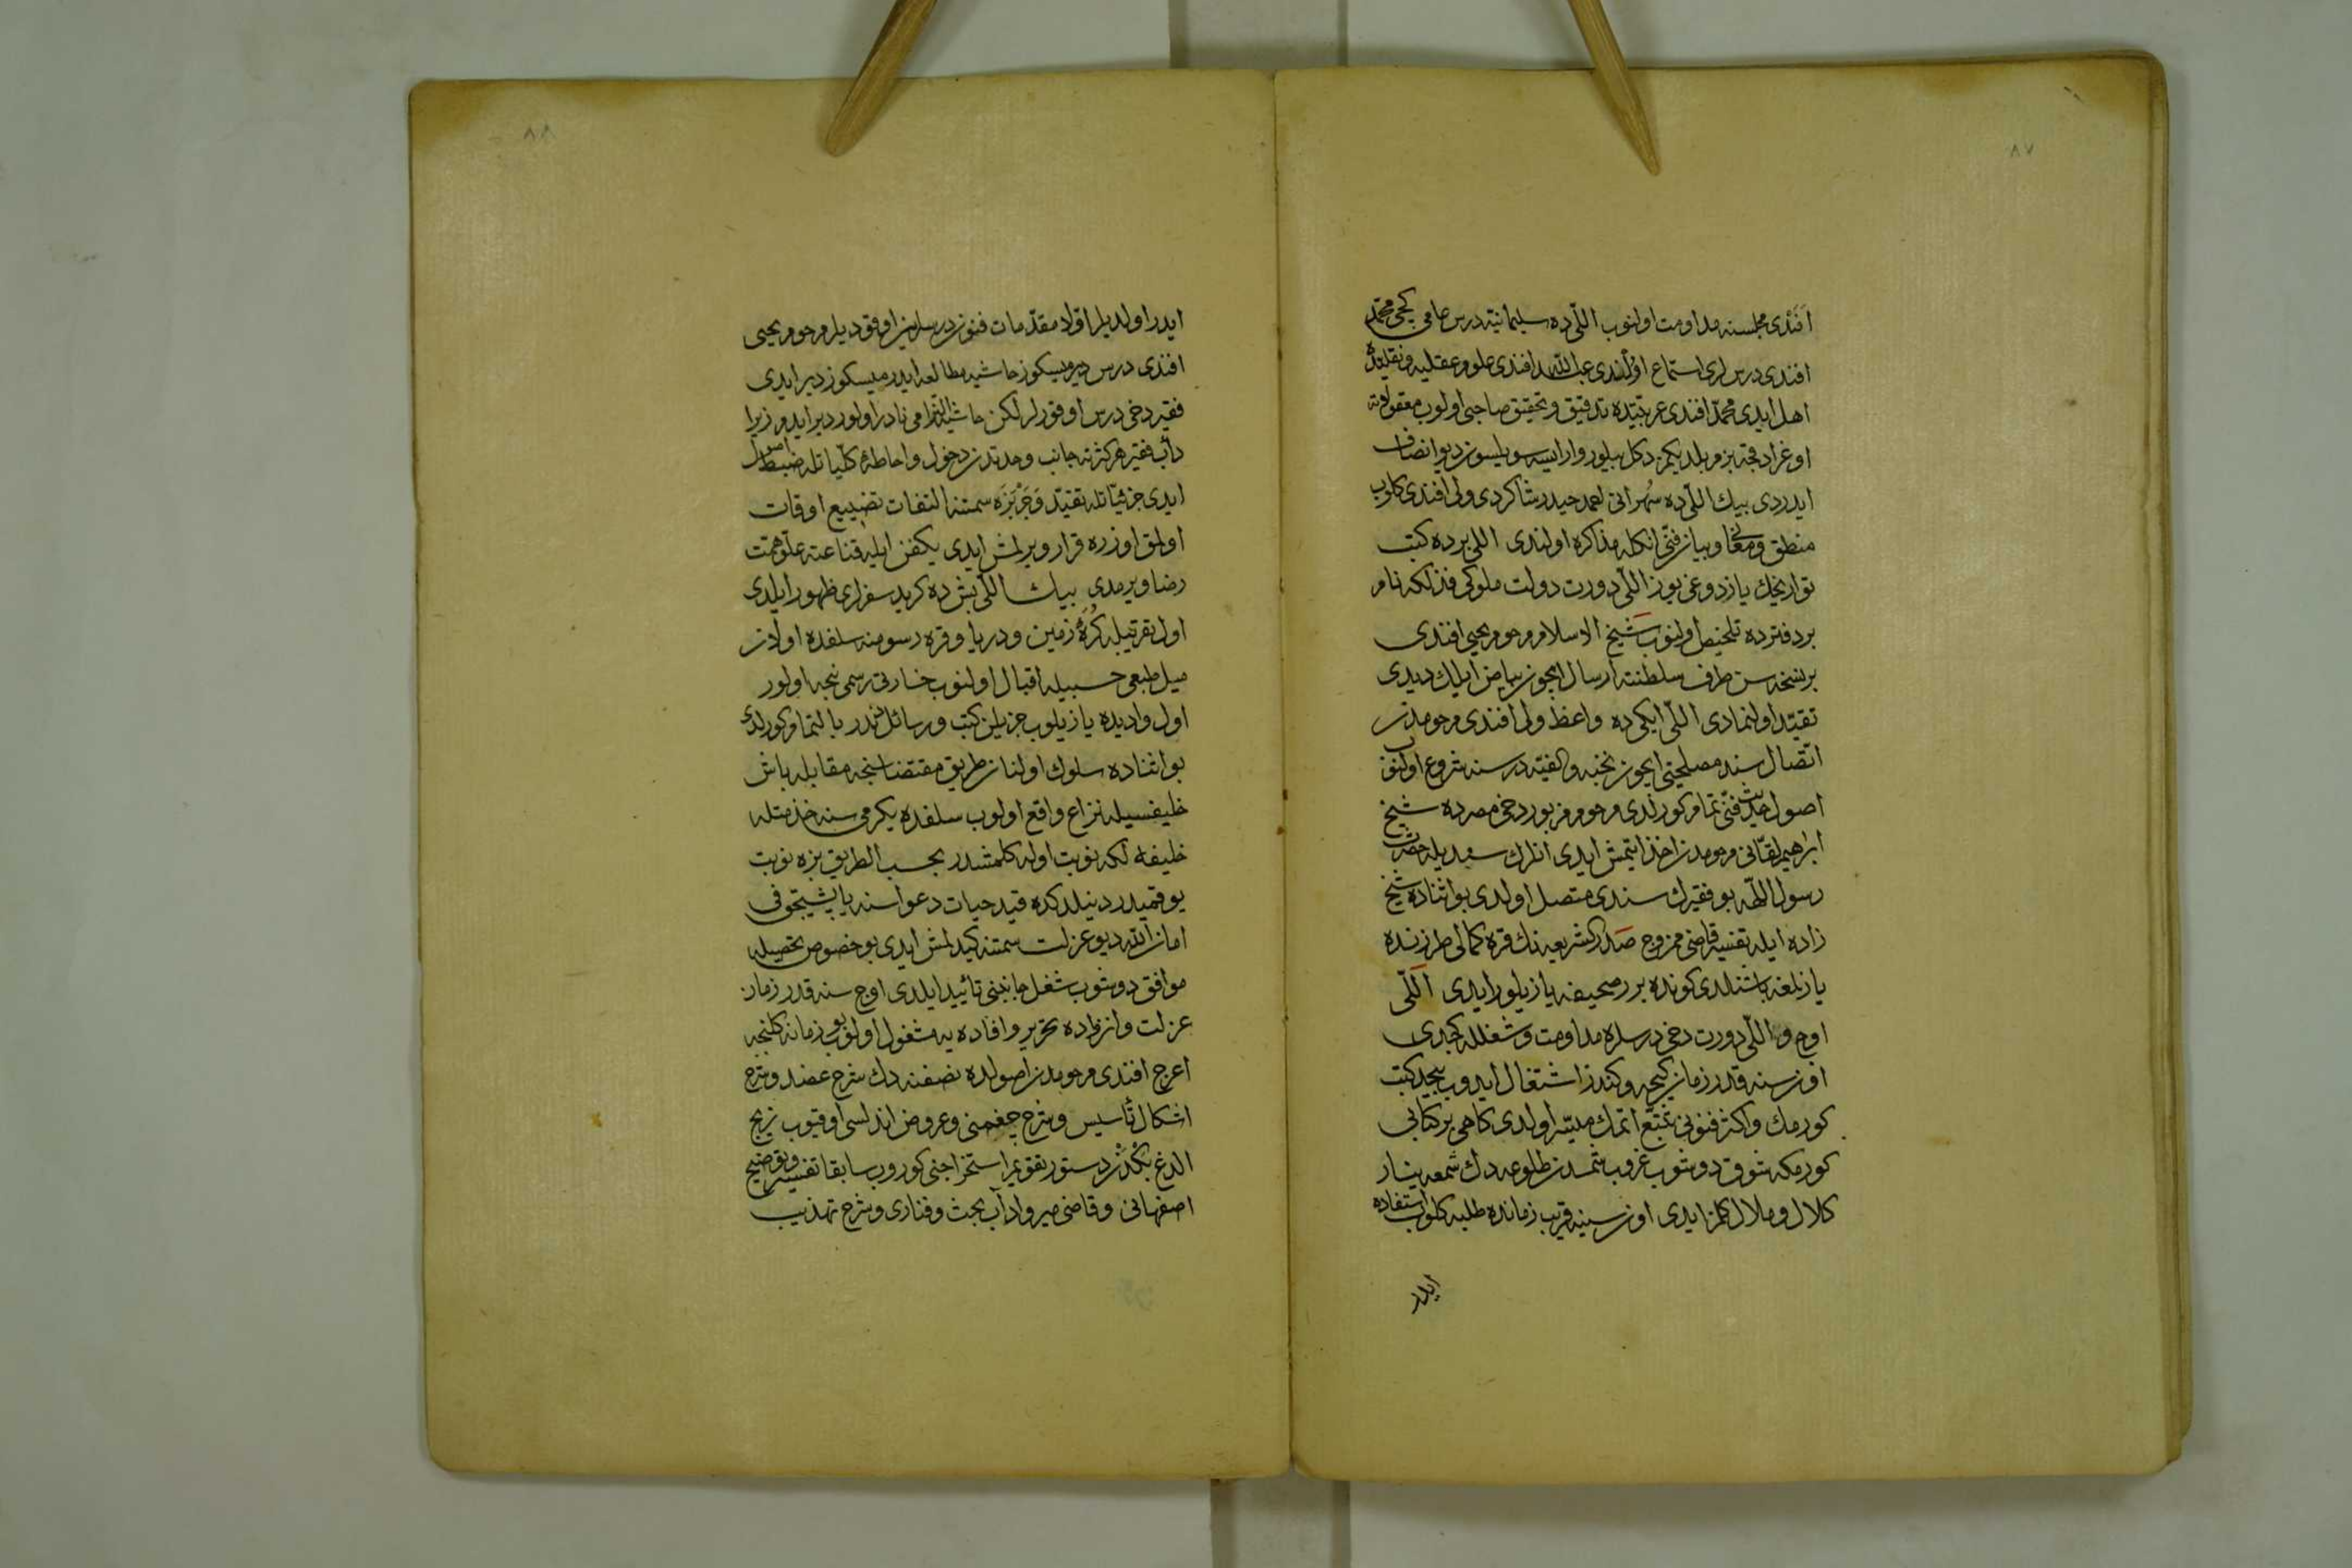 ٨٧
افندی مجلسنه مداومت اولنوب اللّی ده سلیمانیّه درس عامی کجی محمّد
افندی درسلری استماع اولندی عبد الله افندی علوم عقلیه و نقلیّه ده
اهل ایدی محمّد افندی عربیّتده تدقیق و تحقیق صاحبی اولوب معقولاته
اوغرادقجه بزم بلدیكمز دكل بیلور وار ایسه سویلسون دیو انصاف
ایدردی بیك اللّی ده احمد حیدر شاكردی ولی افندی كلوب
منطق و معانی و بیان فنّی انكله مذاكره اولندی اللی برده كتب
تواریخك یازدوغی یوز اللّی دورت دولت ملوكی فذلكه نام
بر دفترده تلخیص اولنوب شیخ الاسلام مرحوم یحیی افندی
بر نسخه سن طرف سلطنته ارسال ایچون بیاض ایلك دیدی
تقیّد اولنمادی اللّی ایكی ده واعظ ولی افندی مرحومدن
اتّصال سند مصلحتی ایچون نخبه و الفیّه درسنه شروع اولنوب
اصول حدیث فنّی تمام كورلدی مرحوم مزبور دخی مصرده شیخ
ابراهیم لقانی مرحومدن اخذ ایتمش ایدی انلرك سندیله حضرت
رسول الله بو فقیرك سندی متصل اولدی بو اثناده شیخ
زاده ایله تفسیر قاضی ممزوج صدر الشریعه نك قره كمالی طرزنده
یازلمغه باشلندی كونده بر صحیفه یازیلور ایدی اللّی
اوچ و اللّی دورت دخی درسلره مداومت و شغلله كچدی
اون سنه قدر زمان كیجه و كندز اشتغال ایدوب بیحد كتب
كورمك و اكثر فنونی تتبّع اتمك میسّر اولدی كاهی بر كتابی
كورمكه شوق دوشوب غروب شمسدن طلوعه دك شمعه ینار
كلال و ملال كلمز ایدی اون سنیه قریب زمانده طلبه كلوب استفاده
ایدر
٨٨
ایدر اولدیلر اوّلا مقدّمات فنون درسلرین اوقودیلر مرحوم یحیی
افندی درس دیرمیسكوز حاشیه مطالعه ایدرمیسكوز دیر ایدی
فقیر دخی درس اوقورلر لكن حاشیه التزامی نادر اولور دیر ایدم زیرا
دأب فقیر هر كثرته جانب وحدتدن دخول و احاطۀ كلّیاتله ضبط اصول
ایدی جزئیّاتله تقیّد و جربزه سمتنه التفات تضییع اوقات
اولمق اوزره قرار ویرلمش ایدی یكفن ایله قناعته علوّ همّت
رضا ویرمدی بیك اللّی بش ده كرید سفرلری ظهور ایلدی
اول تقریبله كرۀ زمین و دریا و قره رسومنه سلفده اولان
میل طبعی حسبیله اقبال اولنوب خارتی رسمی نیجه اولور
اول وادیده یازیلوب چزیلن كتب و رسائل بالتمام كورلدی
بو اثناده سلوك اولنان طریق مقتضاسنجه مقابله باش
خلیفسیله نزاع واقع اولوب سلفده یكرمی سنه خدمتله
خلیفه لكه نوبت اوله كلمشدر بحسب الطریق بزه نوبت
یوقمیدر دینلدكده قید حیات دعواسنه یاپشیجق فی
امان الله دیو عزلت سمتنه كیدلمش ایدی بو خصوص تحصیله
موافق دوشوب شغل جانبنی تأیید ایلدی اوچ سنه قدر زمان
عزلت و انزواده تحریر و افاده یه مشغول اولنوب بو زمانه كلنجه
اعرج افندی مرحومدن اصولده نصفنه دك شرح عضد و شرح
اشكال تأسیس و شرح چغمینی و عروض اندلسی اوقیوب زیج
الغ بكدن دستور تقویم استخراجنی كوروب سابقا تفسیر و توضیح
اصفهانی و قاضی میر و آداب بحث و فناری و شرح تهذیب